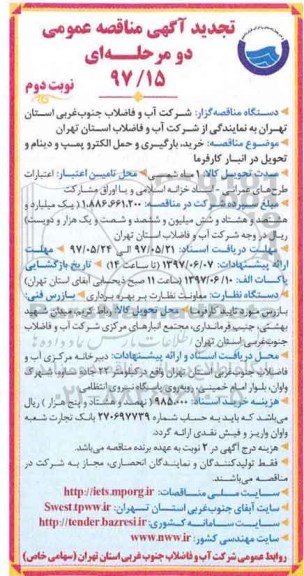 تجدید آگهی مناقصه عمومی
دو مرحله‌ای
۹۷/۱۵
نوبت دوم
دستگاه مناقصه‌گزار: شرکت آب و فاضلاب جنوب‌غربی استان
تهران به نمایندگی از شرکت آب و فاضلاب استان تهران
موضوع مناقصه: خرید، بارگیری و حمل الکترو پمپ و دینام و
تحویل در انبار کارفرما
مدت تحویل کالا: ماه شمسی محل تامین اعتبار: اعتبارات
طرح‌های عمرانی - اسناد خزانه اسلامی و یا اوراق مشارکت
شرکت در مناقصه: ۱،۰۸۸۶،۶۶۱،۲۰۰ (یک میلیارد و
هشتاد و شش میلیون و ششصد و شصت و یک هزار و دویست)
ریال در وجه شرکت آب و فاضلاب استان تهران
مهلت دریافت اسناد: ۹۷/۰۵/۲۱ الی ۹۷/۰۵/۲۴ مهلت
ارائه پیشنهادات: ۱۳۹۷/۰۶/۰۷ (تا ساعت ۱۴) تاریخ بازگشایی
پاکات الف: ۱۳۹۷/۰۶/۱۰ (ساعت ۱۱ صبح ذیحسابی آبفای استان تهران)
دستگاه نظارت: معاونت نظارت بر بهره برداری بازرس فنی:
بازرس مورد تایید کارفرما محل تحویل کالا: رباط کریم، میدان شهید
بهشتی، جنب فرمانداری، مجتمع انبارهای مرکزی شرکت آب و فاضلاب
جنوب‌غربی استان تهران
محل دریافت اسناد و ارائه پیشنهادات: دبیرخانه مرکزی آب و
فاضلاب جنوب‌غربی استان تهران واقع در کیلومتر ۲۳ جاده ساوه، شهرک
واوان، بلوار امام خمینی، روبروی پاسگاه نیروی انتظامی
هزینه خرید اسناد: ۹۸۵،۰۰۰ (نهصد و هشتاد و پنج هزار) ریال
می‌باشد که باید به حساب شماره ۲۷۰۶۹۷۷۳۹ بانک تجارت شعبه
واوان واریز و فیش نقدی ارائه گردد.
هزینه درج آگهی در ۲ نوبت به عهده برنده مناقصه می‌باشد.
فقط تولیدکنندگان و نمایندگان انحصاری، مجاز به شرکت در
مناقصه می‌باشند.
سایت ملی مناقصات: http://iets.mporg.ir
سایت آبفای جنوب‌غربی استان تهران: Swest.tpww.ir
سایت سامانه کشوری: http://tender.bazresi.ir
سایت مهندسی کشور: www.nww.ir
روابط عمومی شرکت آب و فاضلاب جنوب غربی استان تهران (سهامی خاص)